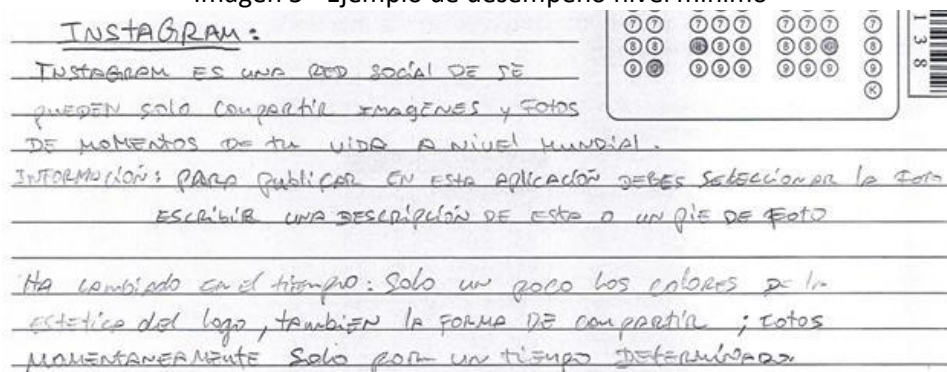 Imagen 5 - Ejemplo de desempeño nivel mínimo
INSTAGRAM:
INSTAGRAM ES UNA RED SOCIAL DE SE
PUEDEN SOLO COMPARTIR IMAGENES Y FOTOS
DE MOMENTOS DE TU VIDA A NIVEL MUNDIAL.
INFORMACIÓN: PARA PUBLICAR EN ESTA APLICACIÓN DEBES SELECCIONAR LA FOTO
ESCRIBIR UNA DESCRIPCIÓN DE ESTA O UN PIE DE FOTO
HA CAMBIADO EN EL TIEMPO: SOLO UN POCO LOS COLORES DE LA
ESTETICA DEL LOGO, TAMBIEN LA FORMA DE COMPARTIR ; FOTOS
MOMENTANEAMENTE SOLO POR UN TIEMPO DETERMINADO.
7 7 7 7 7 7 7 7 7
8 8 8 8 8 8 8 8
9 9 9 9 9 9 9 9
K
1 3 8